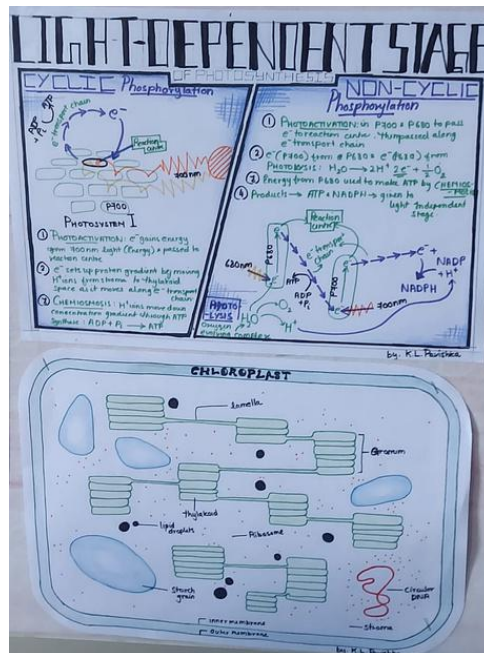 LIGHT-DEPENDENT STAGE
OF PHOTOSYNTHESIS
CYCLIC
Phosphorylation
ADP + Pi
ATP
e- transport chain
e-
Reaction centre
700nm
P700
PHOTOSYSTEM I
① PHOTOACTIVATION: e- gains energy
from 700nm light (energy) & passed to
reaction centre.
② e- sets up proton gradient by moving
H+ ions from stroma to thylakoid
space as it moves along e- transport
chain
③ CHEMIOSMOSIS: H+ ions move down
concentration gradient through ATP
Synthase: ADP + Pi → ATP
NON-CYCLIC
Phosphorylation
① PHOTOACTIVATION: in P700 & P680 to pass
e- to reaction centre, then passed along
e- transport chain.
② e- (P700) from P680 & e- (P680) from
PHOTOLYSIS: H2O → 2H+ 2e- + 1/2 O2
③ Energy from P680 used to make ATP by
④ Products → ATP & NADPH → given to
light independent
stage.
Reaction centre
P680
e- transport chain
P700
680nm
ATP
ADP + Pi
e-
700nm
NADP
+ H+
NADPH
PHOTO-
LYSIS
H2O
O2
H+
Oxygen
complex
by: K.L. Pavishka
CHLOROPLAST
lamella
Granum
thylakoid
lipid
droplets
Ribosome
Starch
grain
Circular
DNA
Stroma
Inner membrane
Outer membrane
by: K.L. Pavishka